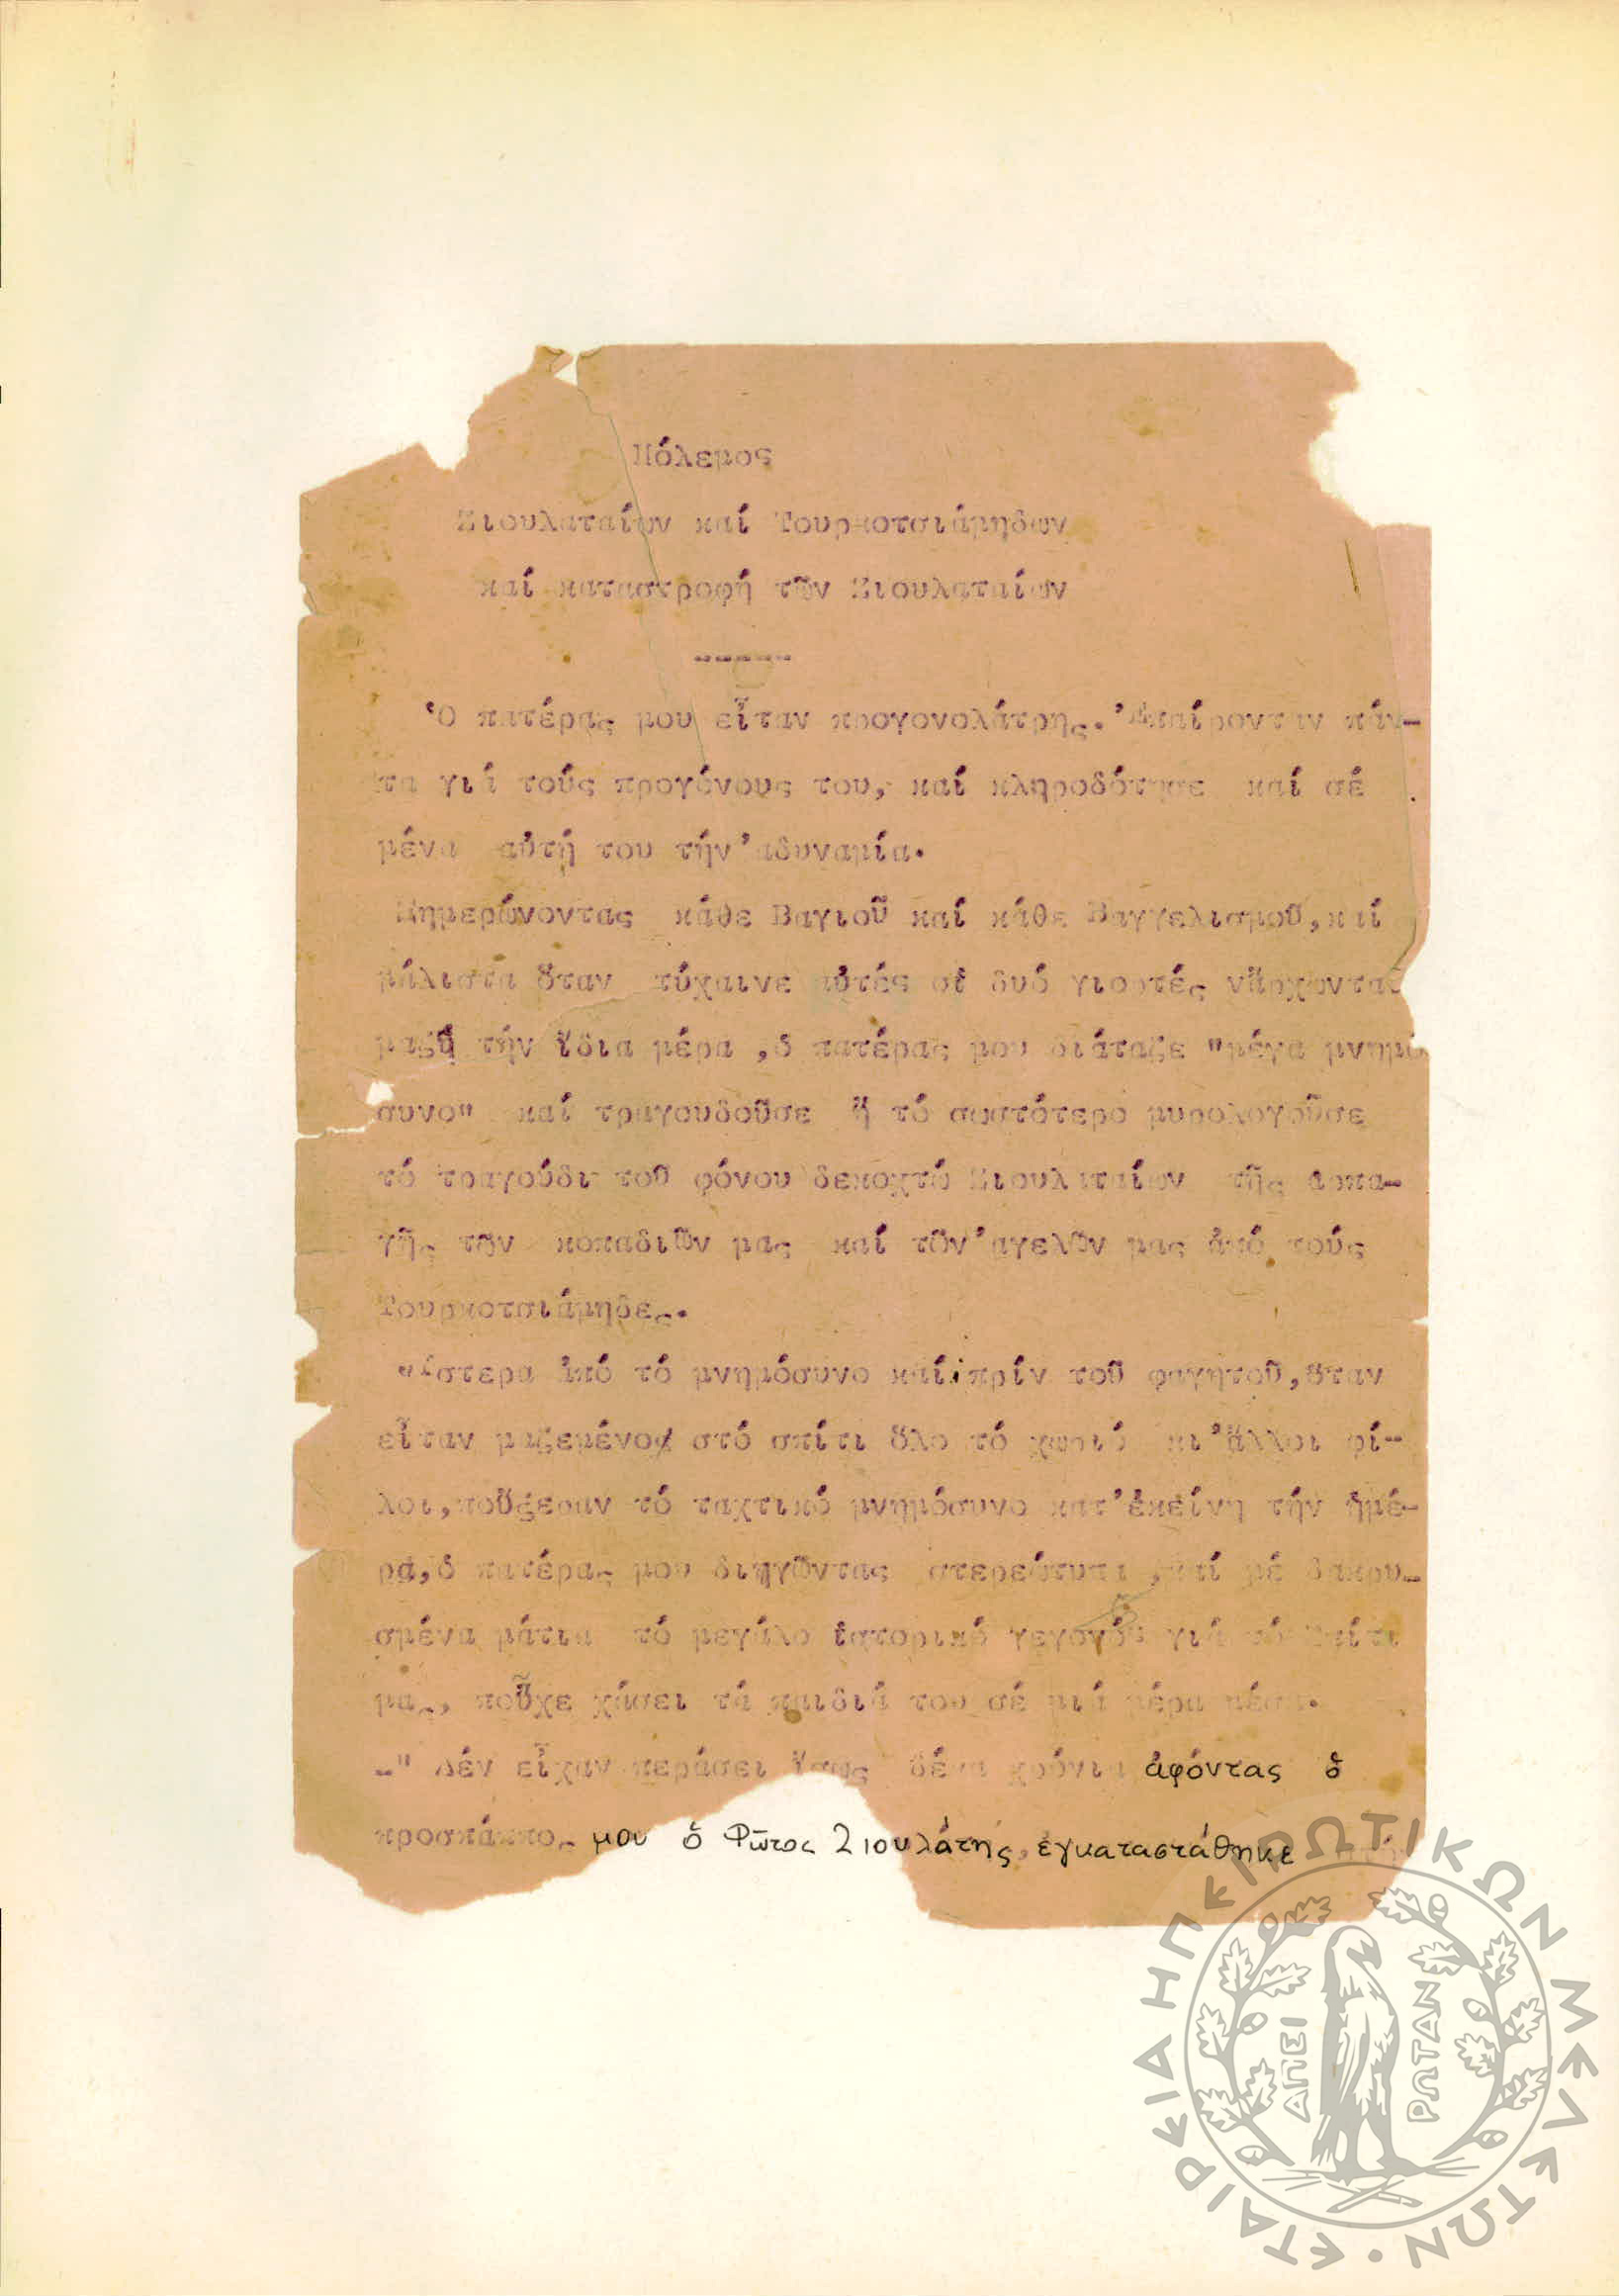 Πόλεμος
Σιουλαταίων καί Τουρκοτσιάμηδων
καί καταστροφή τῶν Σιουλαταίων
-----
Ὁ πατέρας μου εἶταν προγονολάτρης. Ἐπαίρονταν πάν-
τα γιά τούς προγόνους του, καί κληροδότησε καί σέ
μένα αὐτή του τήν ἀδυναμία.
Ξημερώνοντας κάθε Βαγιοῦ καί κάθε Βαγγελισμοῦ, καί
μάλιστα ὅταν τύχαινε αὐτές οἱ δυό γιορτές νἄρχωνται
μαζύ τήν ἴδια μέρα , ὁ πατέρας μου διάταζε "μέγα μνημό
συνο" καί τραγουδοῦσε ἤ τό σωστότερο μυρολογοῦσε
τό τραγούδι τοῦ φόνου δεκοχτώ Σιουλαταίων τῆς ἁρπα-
γῆς τῶν κοπαδιῶν μας καί τῶν ἀγελῶν μας ἀπό τούς
Τουρκοτσιάμηδες.
"Ὕστερα ἀπό τό μνημόσυνο καί πρίν τοῦ φαγητοῦ, ὅταν
εἶταν μαζεμένο στό σπίτι ὅλο τό χωριό κι' ἄλλοι φί-
λοι, ποὔξεραν τό ταχτικό μνημόσυνο κατ' ἐκείνη τήν ἡμέ-
ρα, ὁ πατέρας μου διηγῶντας στερεότυπα , καί μέ δακρυ-
σμένα μάτια τό μεγάλο ἱστορικό γεγονός γιά τό σπίτι
μας, ποὖχε χάσει τά παιδιά του σέ μιά μέρα μέσα.
-" Δέν εἶχαν περάσει ἴσως δέκα χρόνια ἀφόντας ὁ
προσπάππο μου ὁ Φῶτος Σιουλάτης, ἐγκαταστάθηκε
ΕΤΑΙΡΕΙΑ ΗΠΕΙΡΩΤΙΚΩΝ ΜΕΛΕΤΩΝ
ΑΠΕΙ
ΡΩΤΑΝ